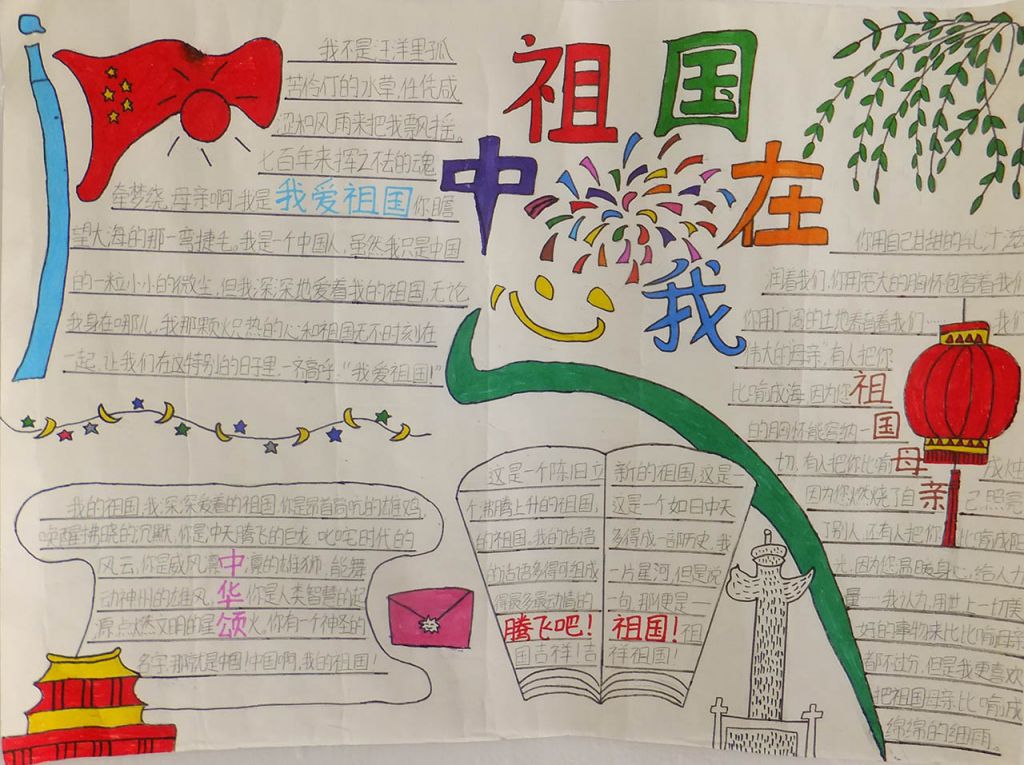 祖国
中在
心我
我不是汪洋里孤
苦伶仃的水草,任凭咸
涩和风雨来把我飘摇。
七百年来挥之不去的魂
牵梦绕,母亲啊,我是我爱祖国你瞻
望大海的那一弯捷毛。我是一个中国人,虽然我只是中国
的一粒小小的微尘,但我深深地爱着我的祖国,无论
我身在哪儿,我那颗火只热的心和祖国无不时刻在
一起,让我们在这特别的日子里一齐高呼:“我爱祖国!”
我的祖国,我深深爱着的祖国,你是昂首高吭的雄鸡,
唤醒拂晓的沉默,你是中天腾飞的巨龙,叱咤时代的
风云,你是威风凛中凛的雄狮,能舞
动神州的雄风,华你是人类智慧的起
原点燃文明的星颂火,你有一个神圣的
名字,那就是中国!中国啊,我的祖国!
这是一个陈旧立
个沸腾上升的祖国,
的祖国,我的话语
的话语多得可组成
得最多最动情的
腾飞吧!
国吉祥!吉
新的祖国,这是
这是一个如日中天
多得成一部历史,我
一片星河,但是说
一句,那便是一
祖国!祖
祥祖国!
你用自己甘甜的乳汁滋
润着我们,你用宽大的胸怀包容着我们
你用广阔的土地养育着我们……我们
伟大的母亲,有人把你
比喻成海,因为您祖
的胸怀能容纳一国
切,有人把你比喻母成烛
因为您燃烧了自亲己,照亮
了别人,还有人把你比喻成阳
光,因为您温暖身心,给人力
量……我认为用世上一切美
好的事物来比喻母亲
都不过分,但是我更喜欢
把祖国母亲比喻成
绵绵的细雨。